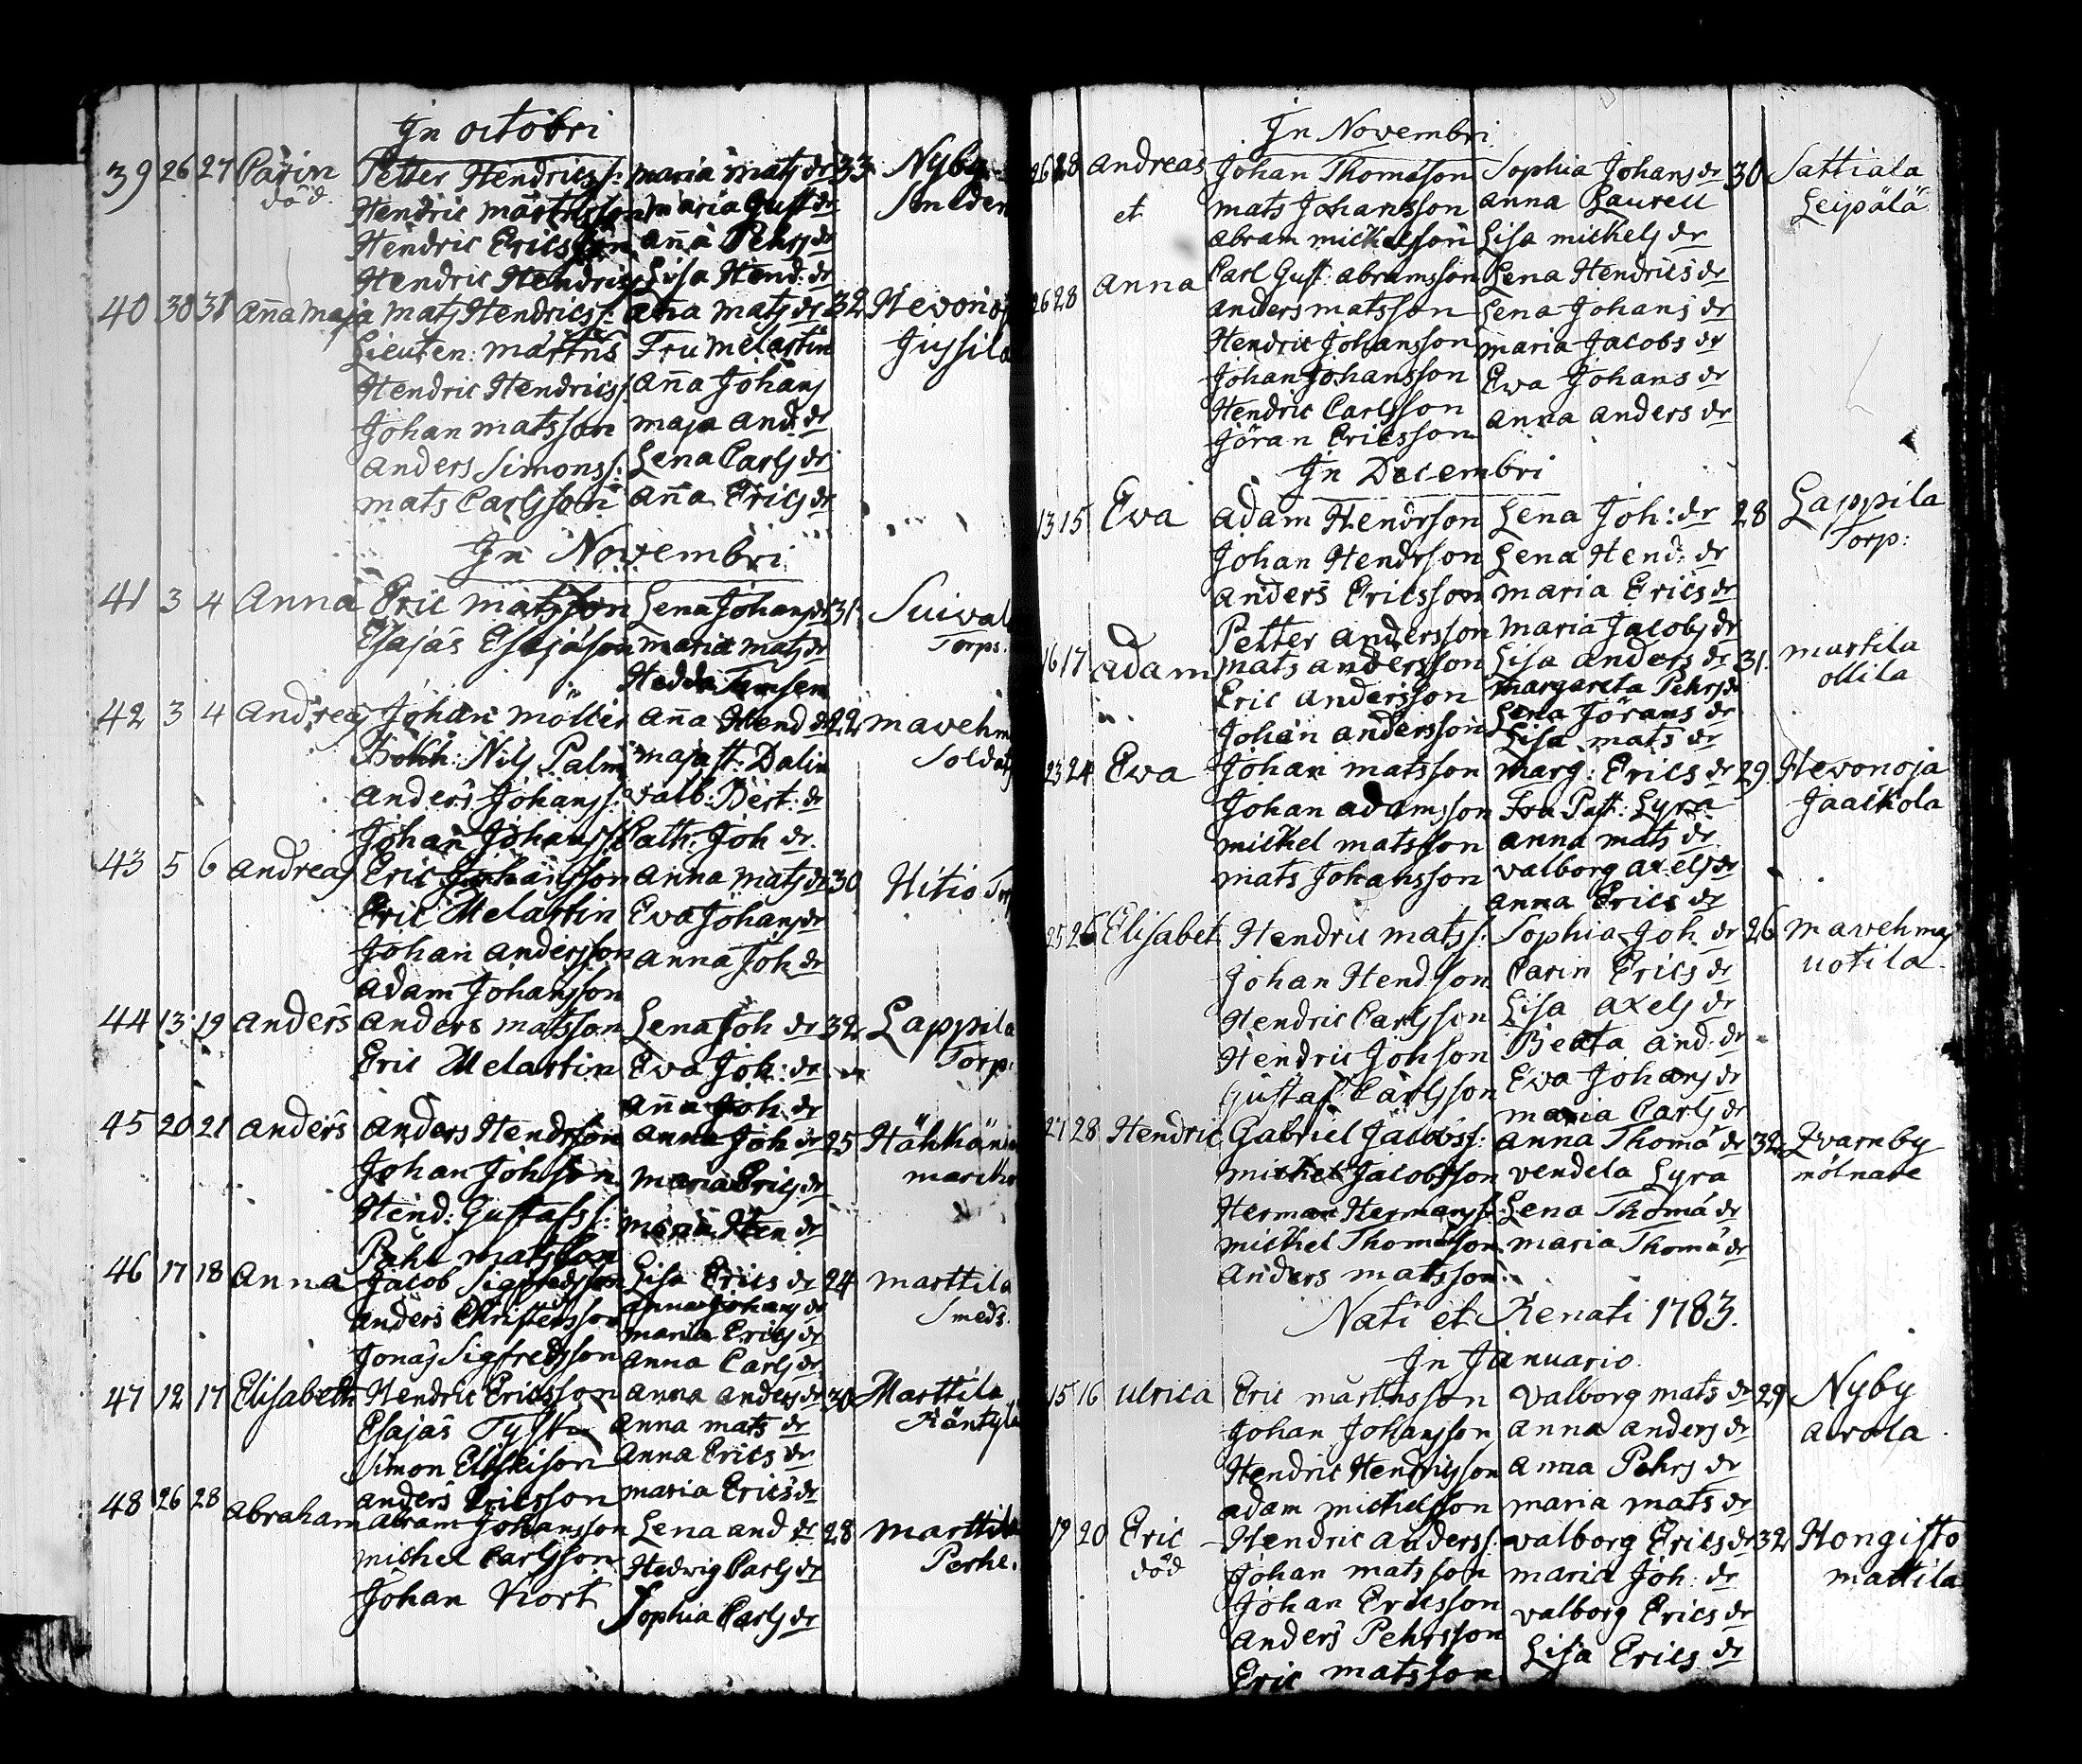 In octobri
39 26 27 Carin Petter Hendricss: maria mats dr 33 Nyby
död Hendric mårtensson maria Gust dr Smeden
Hendric Ericsson aña Pehrs dr
Hendric Hendricss Lisa Hend: dr
40 30 31 aña maja mats Hendricss: aña mats dr 32 Hevonoj
Lieuten: Fru Melartin Jussila
Hendric Hendricss: aña Johans
Johan matsson maja and: dr
anders Simonss: Lena Carls dr
mats Carlsson aña Erics dr
In Novembri
41 3 4 Anna Eric matsson Lena Johans dr 31 Suival
Esajas Esajason maria mats dr Torps.
Hedda
42 3 4 Andreas Johan möller aña Hend dr 22 mavehm
Nils Palm maja st: Dalin Sold
anders Johanss: valb: Bert: dr
Johan Johanss Cath: Joh dr.
43 5 6 andreas Eric Johansson anna mats dr 30 Hitio
Eric Melartin Ewa Johans dr
Johan andersson anna Joh dr
adam Johansson
44 13 19 anders anders matsson Lena Joh dr 32 Lappila
Eric Melartin Ewa Joh: dr Torp:
aña Joh dr
45 20 21 anders anders Hendrsson anna Joh dr 25
Johan Johsson maria Erics dr
Hend: Gustafss: maria Hen dr
Påhl matsson
46 17 18 anna Jacob Sigfredsson Lisa Erics dr 24 marttila
anders Christersson anna Johans dr Smeds.
maria Erics dr
Jonas Sigfredsson anna Carls dr
47 12 17 Elisabeth Hendric Ericsson anna anders dr 30 Marttila
Esajas anna mats dr Käntylä
Simon anna Erics dr
anders Ericsson maria Erics dr
48 26 28 abraham abram Johansson Lena and dr 28 marttila
michel Carlsson Hedvig Carls dr Perhe.
Johan Kort Sophia Carls dr
In Novembri
26 28 andreas Johan Thomason Sophia Johans dr 30 Sattiala
et mats Johansson anna Laurell Leipälä
abram michelsson Lisa michels dr
Carl Gust: abramsson Lena Hendrics dr
26 28 anna anders matsson Lena Johans dr
Hendric Johansson maria Jacobs dr
Johan Johansson Ewa Johans dr
Hendric Carlsson anna anders dr
Jöran Ericsson
In Decembri
13 15 Ewa adam Hendrson Lena Joh: dr 28 Lappila
Johan Hendrson Lena Hend: dr Torp:
anders Ericsson maria Erics dr
Petter andersson Maria Jacobs dr
16 17 adam mats andersson Lisa anders dr 31. martila
Eric andersson margareta Pehrs dr ollila
Johan andersson Lena Jörans dr
Lisa mats dr
23 24 Ewa Johan matsson marg: Erics dr 29 Hevonoja
Johan adamsson Fru Past: Lyra Jaackola
michel matsson anna mats dr
mats Johansson valborg axels dr
anna Erics dr
25 26 Elisabet Hendric matss: Sophia Joh dr 26 mavehmaj
Johan Hendsson Carin Erics dr uotila
Hendric Carlsson Lisa axels dr
Hendric Johson Beata and: dr
Gustaf Carlsson Ewa Johans dr
maria Carls dr
27 28 Hendric Gabriel Jacobss: anna Thoma dr 32 Qvarnby
michel Jacobsson vendela Lyra mölnare
Herman Hermanss Lena Thoma dr
michel Thomasson maria Thoma dr
anders matsson
Nati et Renati 1783.
In Januario
15 16 ulrica Eric mårtensson valborg mats dr 29 Nyby
Johan Johansson anna anders dr avola
Hendric Hendricsson anna Pehrs dr
adam michelsson maria mats dr
19 20 Eric Hendric anderss: valborg Erics dr 32 Hongisto
död Johan matsson maria Joh: dr mattila
Johan Ericsson valborg Erics dr
anders Pehrsson Lisa Erics dr
Eric matsson